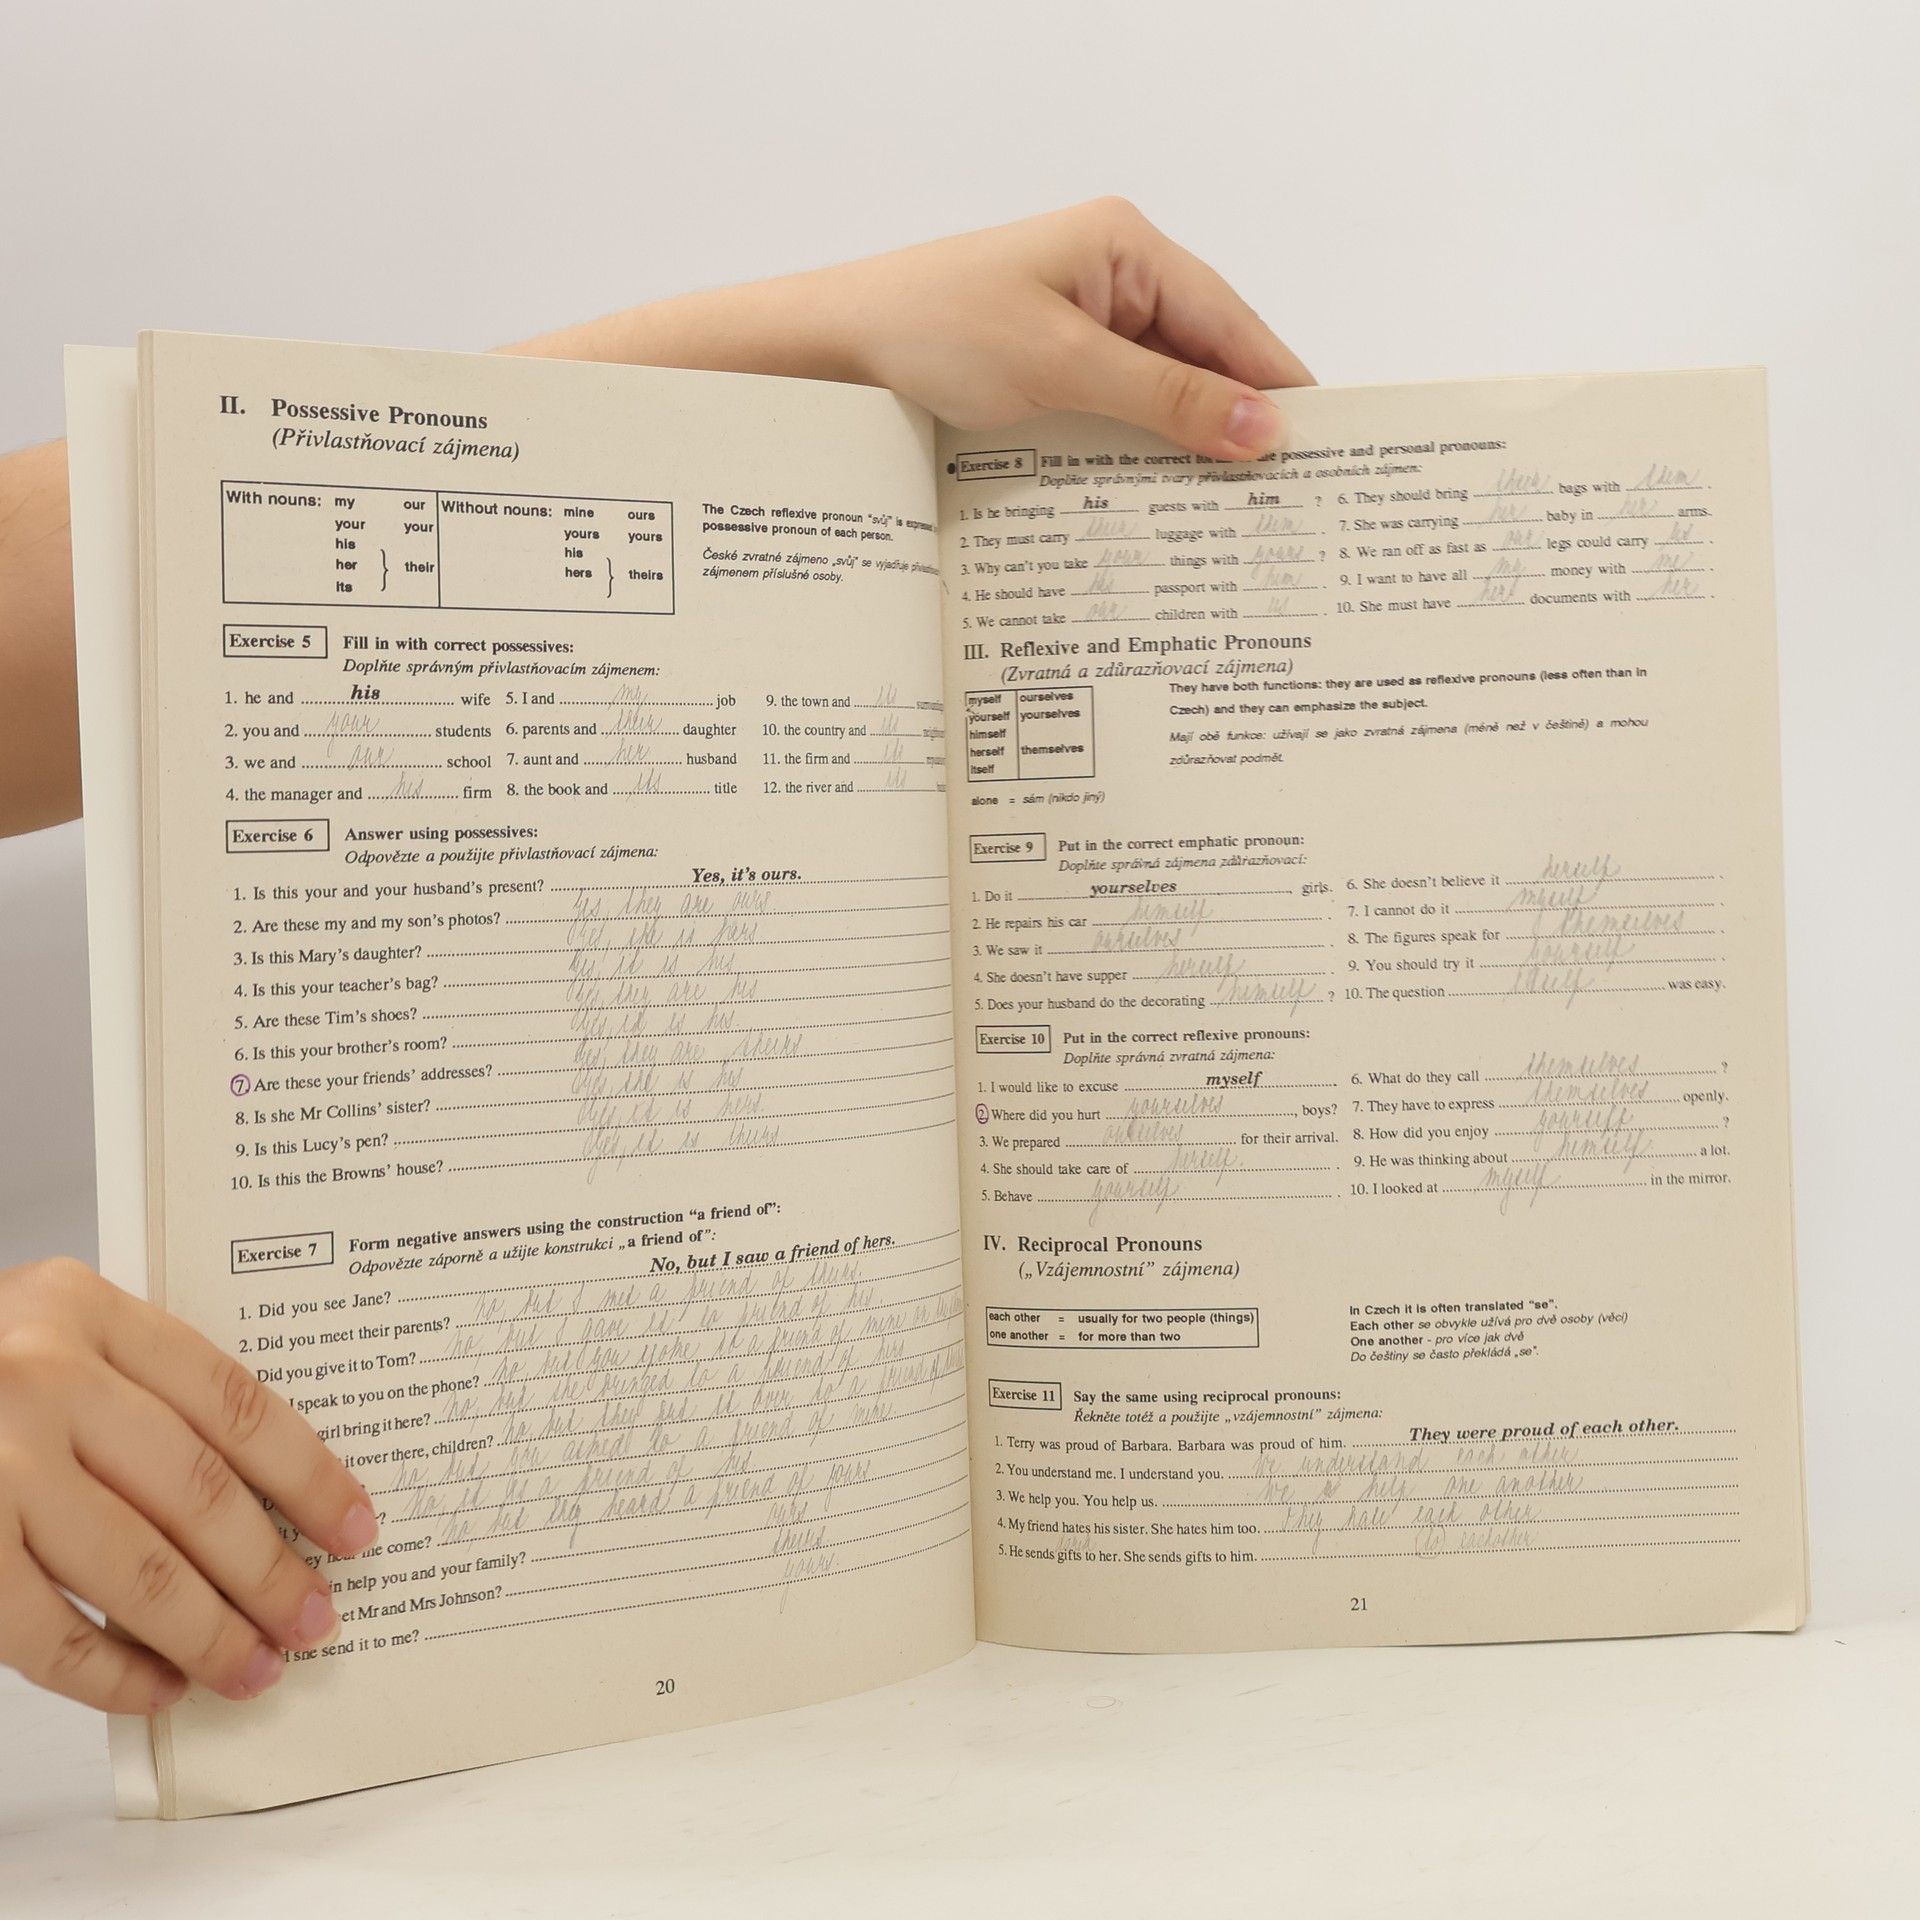 II. Possessive Pronouns
(Přivlastňovací zájmena)
With nouns: my our Without nouns: mine ours
your your yours yours
his his
her their hers theirs
its
The Czech reflexive pronoun "svůj" is
possessive pronoun of each person.
České zvratné zájmeno „svůj" se vyjadřuje
zájmenem příslušné osoby.
Exercise 5 Fill in with correct possessives:
Doplňte správným přivlastňovacím zájmenem:
1. he and his wife 5. I and my job 9. the town and its
2. you and your students 6. parents and their daughter 10. the country and its
3. we and our school 7. aunt and her husband 11. the firm and its
4. the manager and his firm 8. the book and its title 12. the river and its
Exercise 6 Answer using possessives:
Odpovězte a použijte přivlastňovací zájmena:
1. Is this your and your husband's present? Yes, it's ours.
2. Are these my and my son's photos? Yes, they are ours.
3. Is this Mary's daughter? Yes, she is hers
4. Is this your teacher's bag? Yes, it is his
5. Are these Tim's shoes? Yes, they are his
6. Is this your brother's room? Yes, it is his.
7. Are these your friends' addresses? Yes, they are theirs
8. Is she Mr Collins' sister? Yes, she is his
9. Is this Lucy's pen? Yes, it is hers
10. Is this the Browns' house? Yes, it is theirs
Exercise 7 Form negative answers using the construction "a friend of":
Odpovězte záporně a užijte konstrukci „a friend of":
1. Did you see Jane? No, but I saw a friend of hers.
2. Did you meet their parents? No, but I met a friend of theirs.
Did you give it to Tom? No, but I gave it to friend of his.
I speak to you on the phone? No, but you spoke to a friend of mine on
girl bring it here? No, but she bringed to a friend of hers
it over there, children? No, but they put it over to a friend of
? No, but you asked to a friend of mine
? No, it is a friend of his
me come? No, but they heard a friend of yours
in help you and your family? ours
et Mr and Mrs Johnson? theirs
she send it to me? yours.
20
Exercise 8 Fill in with the correct possessive and personal pronouns:
Doplňte správnými tvary přivlastňovacích a osobních zájmen:
1. Is he bringing his guests with him ? 6. They should bring their bags with them .
2. They must carry their luggage with them . 7. She was carrying her baby in her arms.
3. Why can't you take your things with yours ? 8. We ran off as fast as our legs could carry us .
4. He should have his passport with him . 9. I want to have all my money with me .
5. We cannot take our children with us . 10. She must have her documents with her .
III. Reflexive and Emphatic Pronouns
(Zvratná a zdůrazňovací zájmena)
myself ourselves
yourself yourselves
himself
herself themselves
itself
They have both functions: they are used as reflexive pronouns (less often than in
Czech) and they can emphasize the subject.
Mají obě funkce: užívají se jako zvratná zájmena (méně než v češtině) a mohou
zdůrazňovat podmět.
alone = sám (nikdo jiný)
Exercise 9 Put in the correct emphatic pronoun:
Doplňte správná zájmena zdůrazňovací:
1. Do it yourselves , girls. 6. She doesn't believe it herself .
2. He repairs his car himself . 7. I cannot do it myself .
3. We saw it ourselves . 8. The figures speak for themselves .
4. She doesn't have supper herself . 9. You should try it yourself .
5. Does your husband do the decorating himself ? 10. The question itself was easy.
Exercise 10 Put in the correct reflexive pronouns:
Doplňte správná zvratná zájmena:
1. I would like to excuse myself . 6. What do they call themselves ?
2. Where did you hurt yourselves , boys? 7. They have to express themselves openly.
3. We prepared ourselves for their arrival. 8. How did you enjoy yourself ?
4. She should take care of herself . 9. He was thinking about himself a lot.
5. Behave yourself . 10. I looked at myself in the mirror.
IV. Reciprocal Pronouns
(„Vzájemnostní" zájmena)
each other = usually for two people (things)
one another = for more than two
In Czech it is often translated "se".
Each other se obvykle užívá pro dvě osoby (věci)
One another - pro více jak dvě
Do češtiny se často překládá „se".
Exercise 11 Say the same using reciprocal pronouns:
Řekněte totéž a použijte „vzájemnostní" zájmena:
1. Terry was proud of Barbara. Barbara was proud of him. They were proud of each other.
2. You understand me. I understand you. We understand each other
3. We help you. You help us. We help one another
4. My friend hates his sister. She hates him too. They hate each other
5. He sends gifts to her. She sends gifts to him. (to) eachother
21